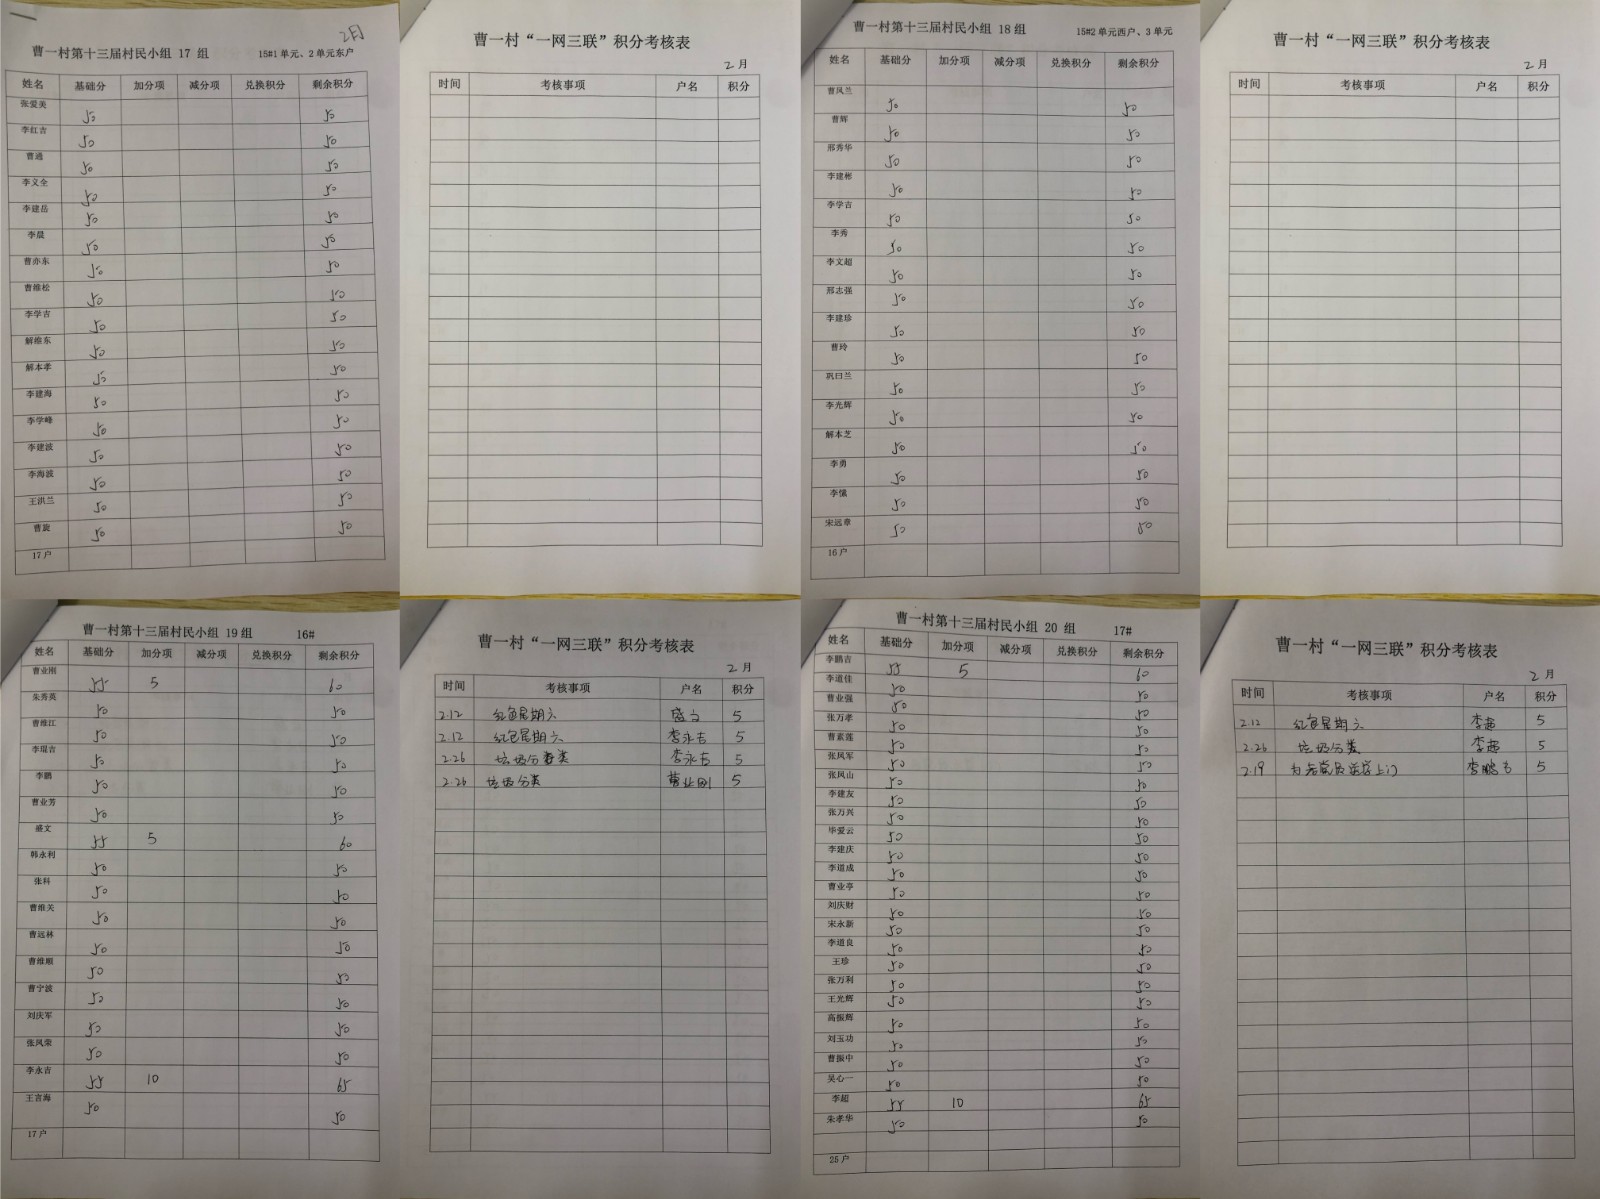 2月
曹一村第十三届村民小组 17 组 15#1单元、2单元东户
姓名 基础分 加分项 减分项 兑换积分 剩余积分
张爱美 50 50
李红吉 50 50
曹通 50 50
李文全 50 50
李建岳 50 50
李晨 50 50
曹亦东 50 50
曹维松 50 50
李学吉 50 50
解维东 50 50
解本孝 50 50
李建海 50 50
李学峰 50 50
李建波 50 50
李海波 50 50
王洪兰 50 50
曹旋 50 50
17户
曹一村“一网三联”积分考核表
2月
时间 考核事项 户名 积分
曹一村第十三届村民小组 18 组 15#2单元西户、3单元
姓名 基础分 加分项 减分项 兑换积分 剩余积分
曹凤兰 50 50
曹辉 50 50
邢秀华 50 50
李建彬 50 50
李学吉 50 50
李秀 50 50
李文超 50 50
邢志强 50 50
李建珍 50 50
曹玲 50 50
巩曰兰 50 50
李光辉 50 50
解本芝 50 50
李勇 50 50
李愫 50 50
宋远章 50 50
16户
曹一村“一网三联”积分考核表
2月
时间 考核事项 户名 积分
曹一村第十三届村民小组 19 组 16#
姓名 基础分 加分项 减分项 兑换积分 剩余积分
曹业刚 55 5 60
朱秀英 50 50
曹维江 50 50
李琨吉 50 50
李鹏 50 50
曹业芳 50 50
盛文 55 5 60
韩永利 50 50
张科 50 50
曹维关 50 50
曹远林 50 50
曹维顺 50 50
曹宁波 50 50
刘庆军 50 50
张凤荣 50 50
李永吉 55 10 65
王言海 50 50
17户
曹一村“一网三联”积分考核表
2月
时间 考核事项 户名 积分
2.12 红色星期六 盛文 5
2.12 红色星期六 李永吉 5
2.26 垃圾分类 李永吉 5
2.26 垃圾分类 曹业刚 5
曹一村第十三届村民小组 20 组 17#
姓名 基础分 加分项 减分项 兑换积分 剩余积分
李鹏吉 55 5 60
李道佳 50 50
曹业强 50 50
张万孝 50 50
曹素莲 50 50
张凤军 50 50
张凤山 50 50
李建友 50 50
张万兴 50 50
毕爱云 50 50
李建庆 50 50
李道成 50 50
曹业亭 50 50
刘庆财 50 50
宋永新 50 50
李道良 50 50
王珍 50 50
张万利 50 50
王光辉 50 50
高振辉 50 50
刘玉功 50 50
曹振中 50 50
吴心一 50 50
李超 55 10 65
朱孝华 50 50
25户
曹一村“一网三联”积分考核表
2月
时间 考核事项 户名 积分
2.12 红色星期六 李超 5
2.26 垃圾分类 李超 5
2.19 为老党员送学上门 李鹏吉 5